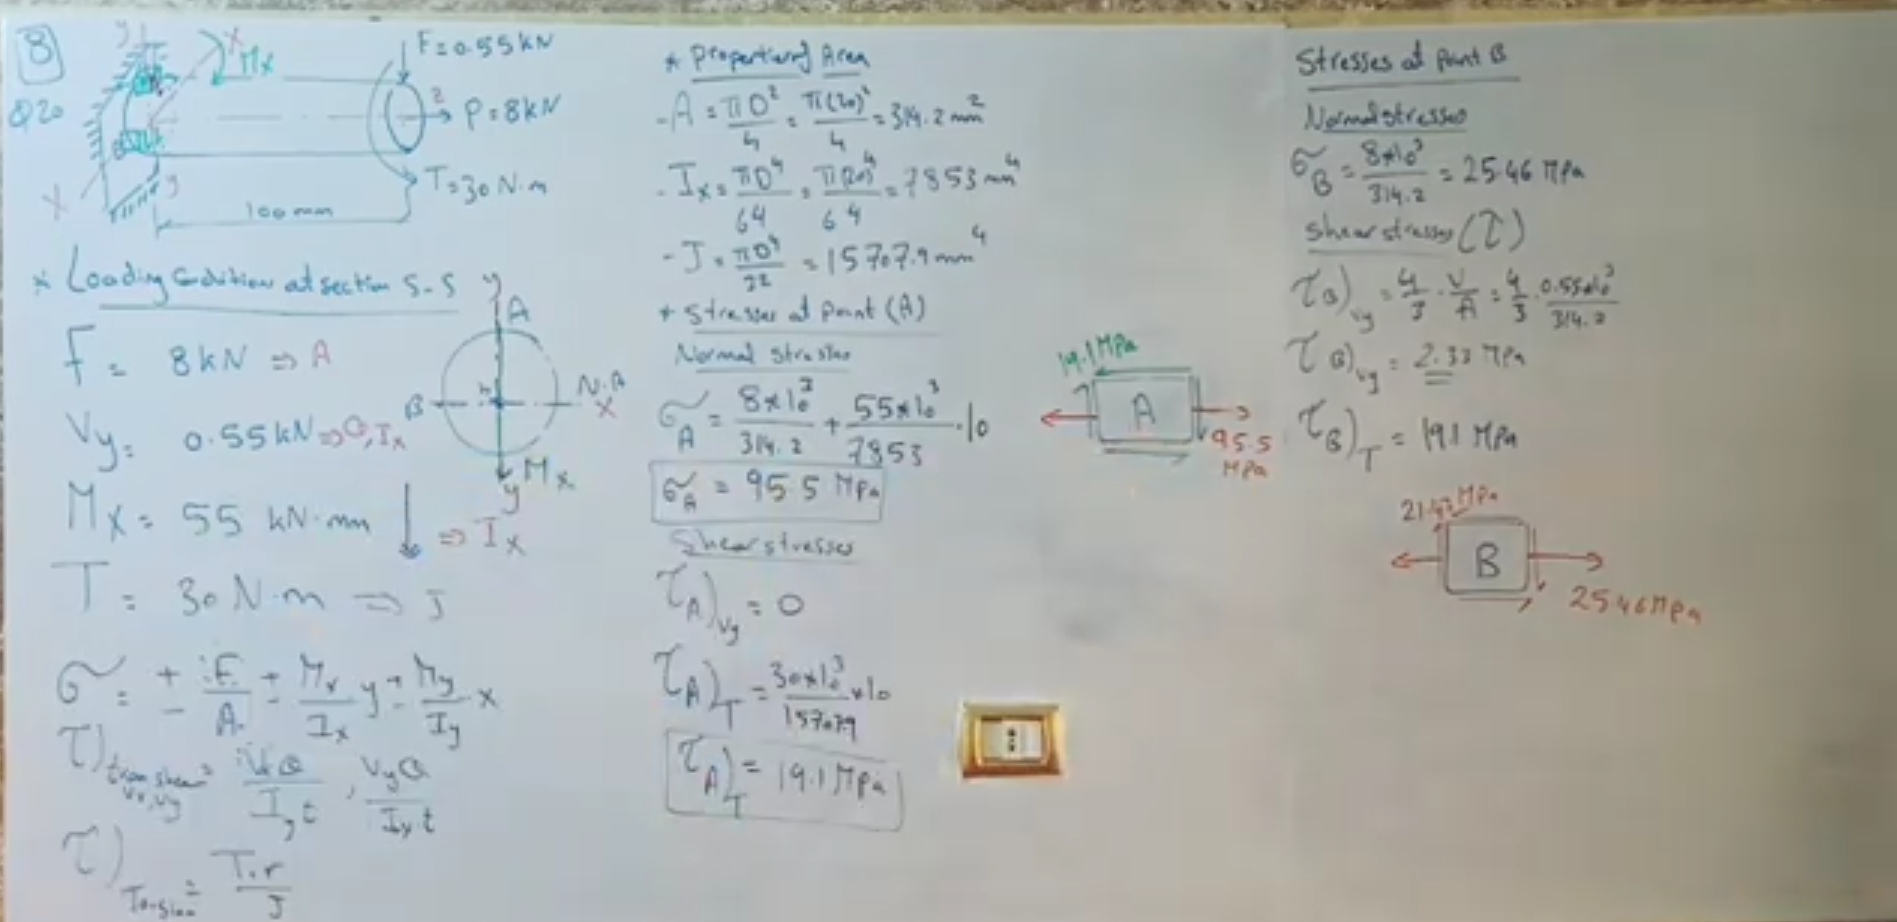 8
Q20
y
X
Mx
F=0.55kN
z
P=8kN
T=30N.m
X
y
100mm
* Loading Condition at section S-S
F = 8kN ⇒ A
Vy = 0.55kN ⇒ Q, Ix
Mx = 55 kN.mm ↓ ⇒ Ix
T = 30N.m ⇒ J
σ = ± F/A ± Mx/Ix y ± My/Iy x
τ)trans shear Vx,Vy = VxQ/Iy t , VyQ/Ix t
τ)Torsion = T.r/J
y
A
B
N.A
X
Mx
y
* Properties of Area
- A = πD²/4 = π(20)²/4 = 314.2mm²
- Ix = πD⁴/64 = π(20)⁴/64 = 7853mm⁴
- J = πD⁴/32 = 15707.9mm⁴
* Stresses at Point (A)
Normal stresses
σA = 8*10³/314.2 + 55*10³/7853 .10
σA = 95.5 MPa
Shear stresses
τA)Vy = 0
τA)T = 30*10³/15707.9 *10
τA)T = 19.1MPa
19.1MPa
A
95.5
MPa
Stresses at Point B
Normal stresses
σB = 8*10³/314.2 = 25.46 MPa
Shear stresses (τ)
τB)Vy = 4/3 . V/A = 4/3 . 0.55*10³/314.2
τB)Vy = 2.33 MPa
τB)T = 19.1 MPa
21.43MPa
B
25.46MPa